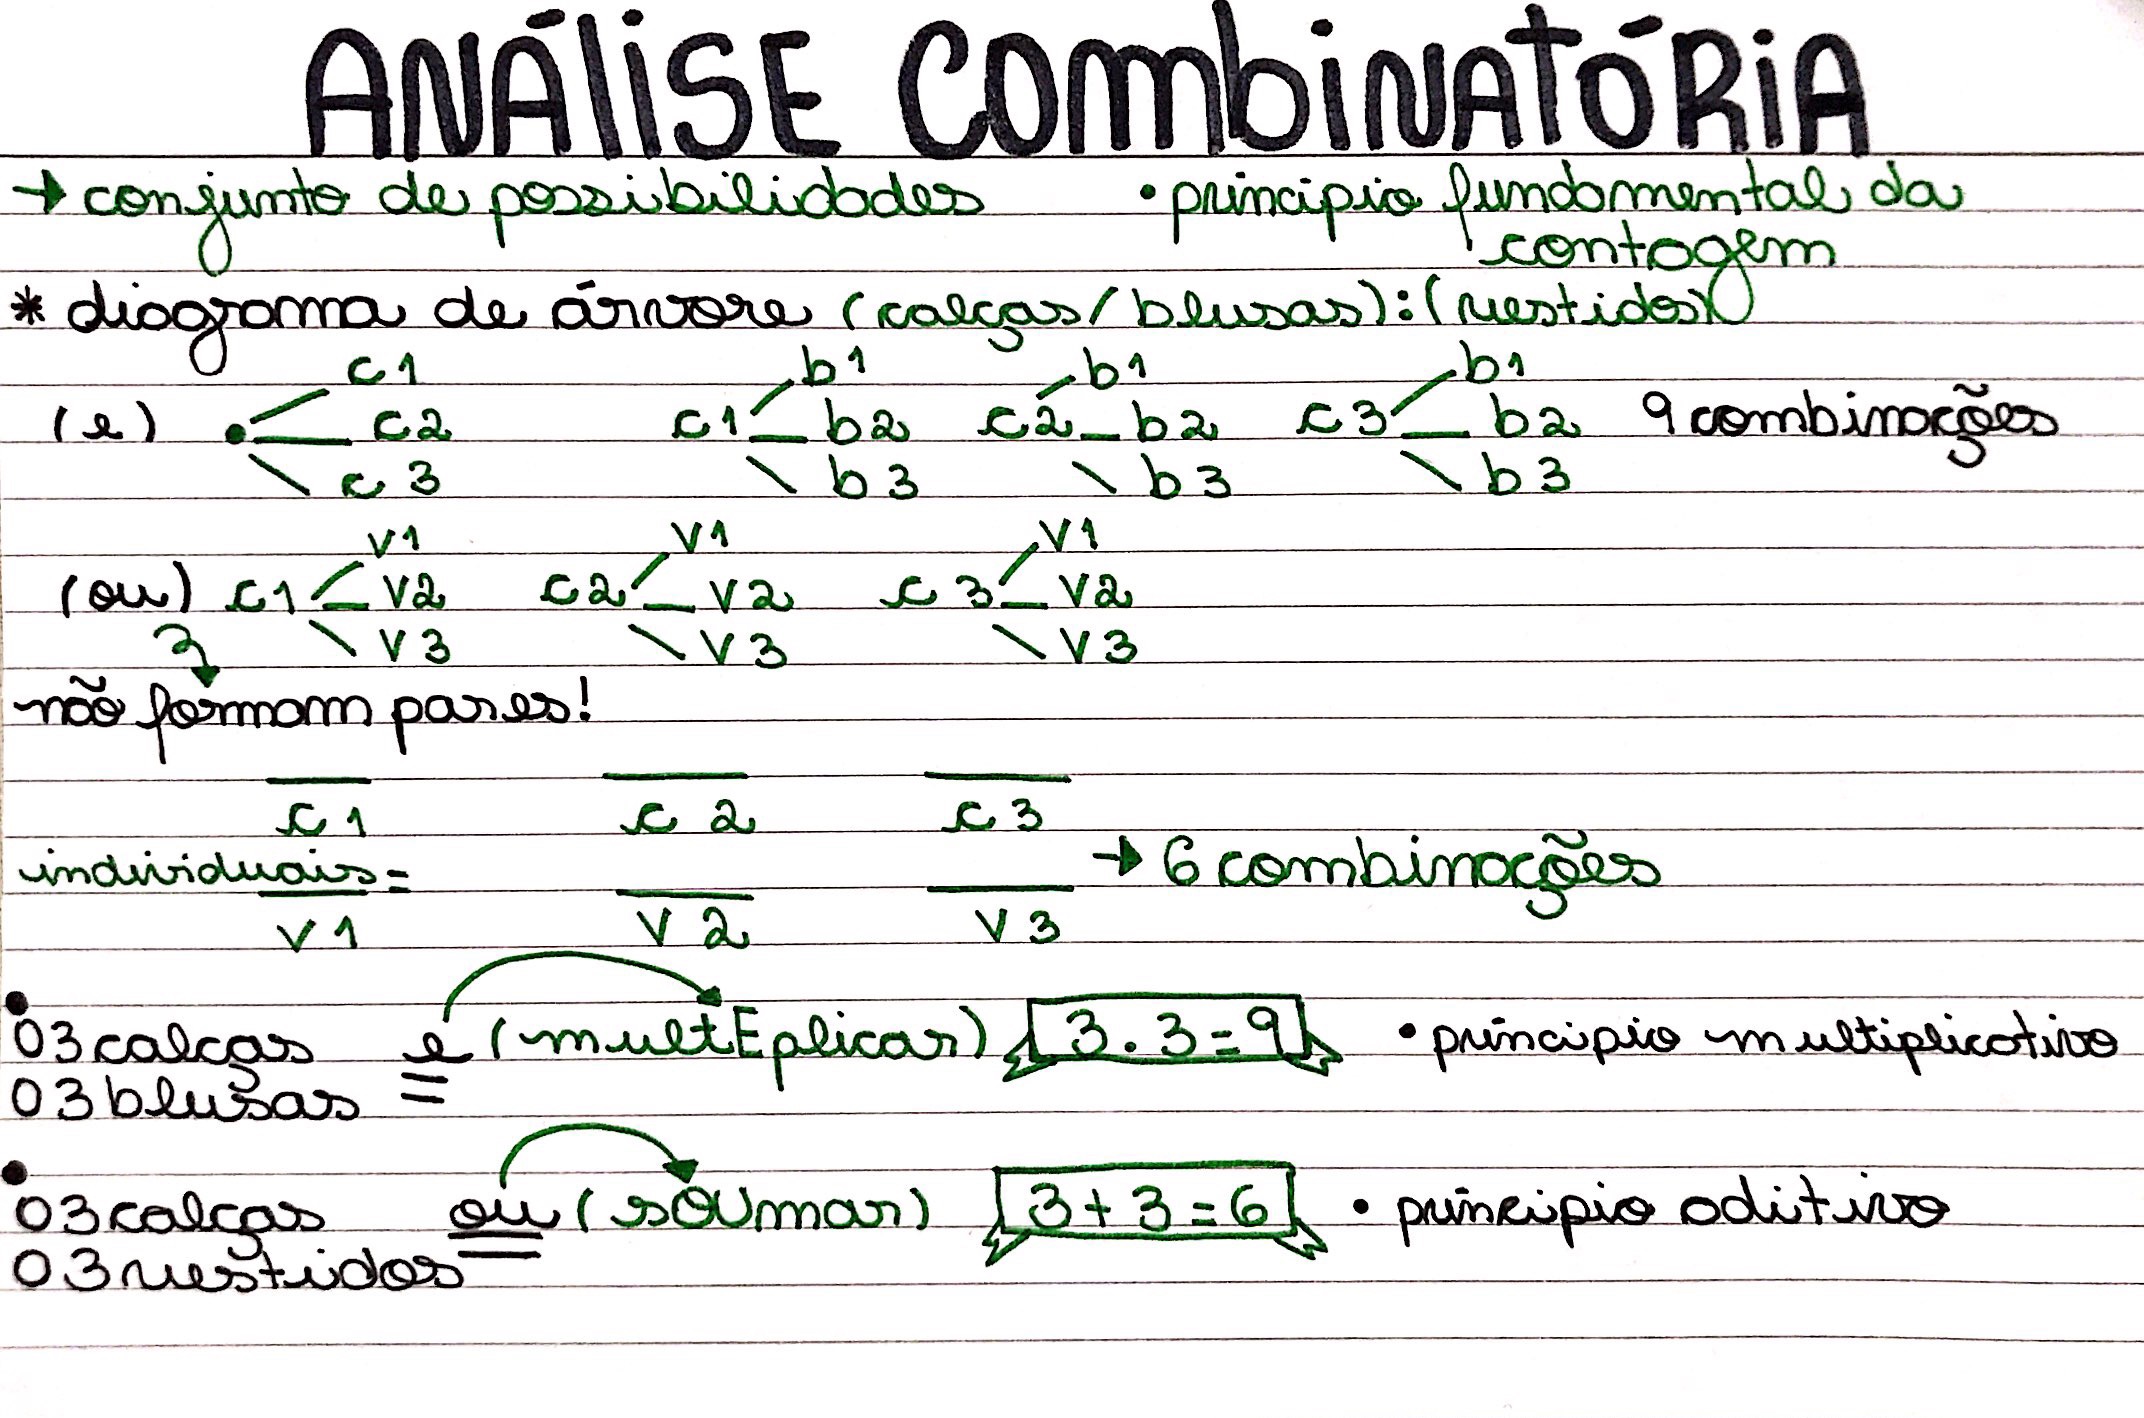 ANÁliSE COmbiNATÓRiA
→ conjunto de possibilidades • princípio fundamental da
contagem
* diagrama de árvore (calças/blusas): (vestidos)
c1 b1 b1 b1
(e) • c2 c1 b2 c2 b2 c3 b2 9 combinações
c3 b3 b3 b3
v1 v1 v1
(ou) c1 v2 c2 v2 c3 v2
v3 v3 v3
não formam pares!
c1 c2 c3
individuais= → 6 combinações
v1 v2 v3
• 03 calças e (multEplicar) 3.3=9 • princípio multiplicativo
03 blusas
• 03 calças ou (sOUmar) 3+3=6 • princípio aditivo
03 vestidos